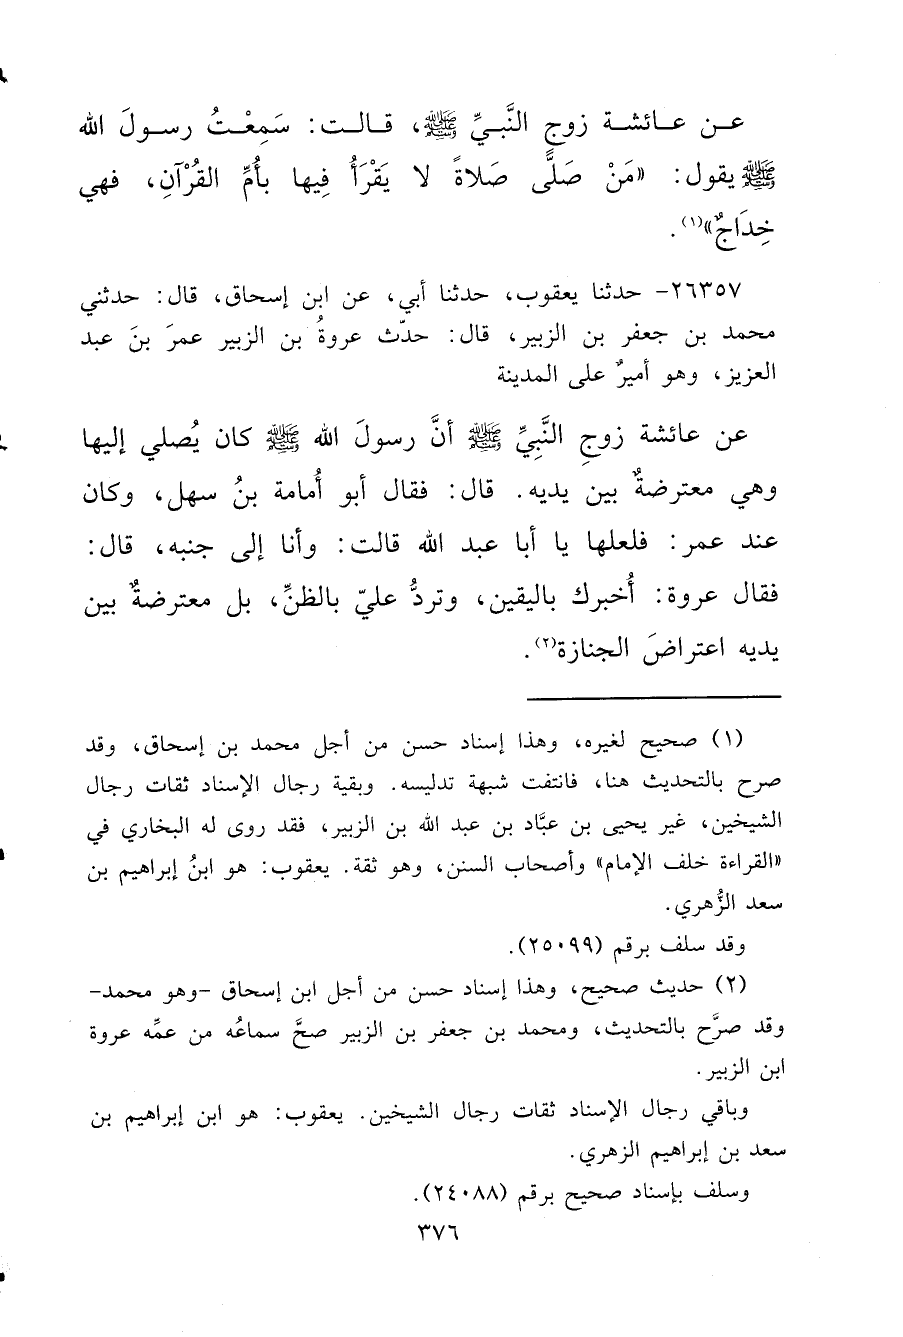 عن عائشة زوجِ النَّبيِّ ﷺ، قالت: سَمِعْتُ رسولَ الله
ﷺ يقول: «مَنْ صَلَّى صَلاةً لا يَقْرَأُ فِيها بأُمِّ القُرْآنِ، فهي
خِدَاجٌ»(١).
٢٦٣٥٧- حدثنا يعقوب، حدثنا أبي، عن ابن إسحاق، قال: حدثني
محمد بن جعفر بن الزبير، قال: حدّث عروةُ بن الزبير عمرَ بنَ عبد
العزيز، وهو أميرٌ على المدينة
عن عائشة زوجِ النَّبيِّ ﷺ أنَّ رسولَ الله ﷺ كان يُصلي إليها
وهي معترضةٌ بين يديه. قال: فقال أبو أُمامة بنُ سهل، وكان
عند عمر: فلعلها يا أبا عبد الله قالت: وأنا إلى جنبه، قال:
فقال عروة: أُخبرك باليقين، وتردُّ عليّ بالظنِّ، بل معترضةٌ بين
يديه اعتراضَ الجنازة(٢).
(١) صحيح لغيره، وهذا إسناد حسن من أجل محمد بن إسحاق، وقد
صرح بالتحديث هنا، فانتفت شبهة تدليسه. وبقية رجال الإسناد ثقات رجال
الشيخين، غير يحيى بن عبَّاد بن عبد الله بن الزبير، فقد روى له البخاري في
«القراءة خلف الإمام» وأصحاب السنن، وهو ثقة. يعقوب: هو ابنُ إبراهيم بن
سعد الزُّهري.
وقد سلف برقم (٢٥٠٩٩).
(٢) حديث صحيح، وهذا إسناد حسن من أجل ابن إسحاق -وهو محمد-
وقد صرَّح بالتحديث، ومحمد بن جعفر بن الزبير صحَّ سماعُه من عمِّه عروة
ابن الزبير.
وباقي رجال الإسناد ثقات رجال الشيخين. يعقوب: هو ابن إبراهيم بن
سعد بن إبراهيم الزهري.
وسلف بإسناد صحيح برقم (٢٤٠٨٨).
٣٧٦